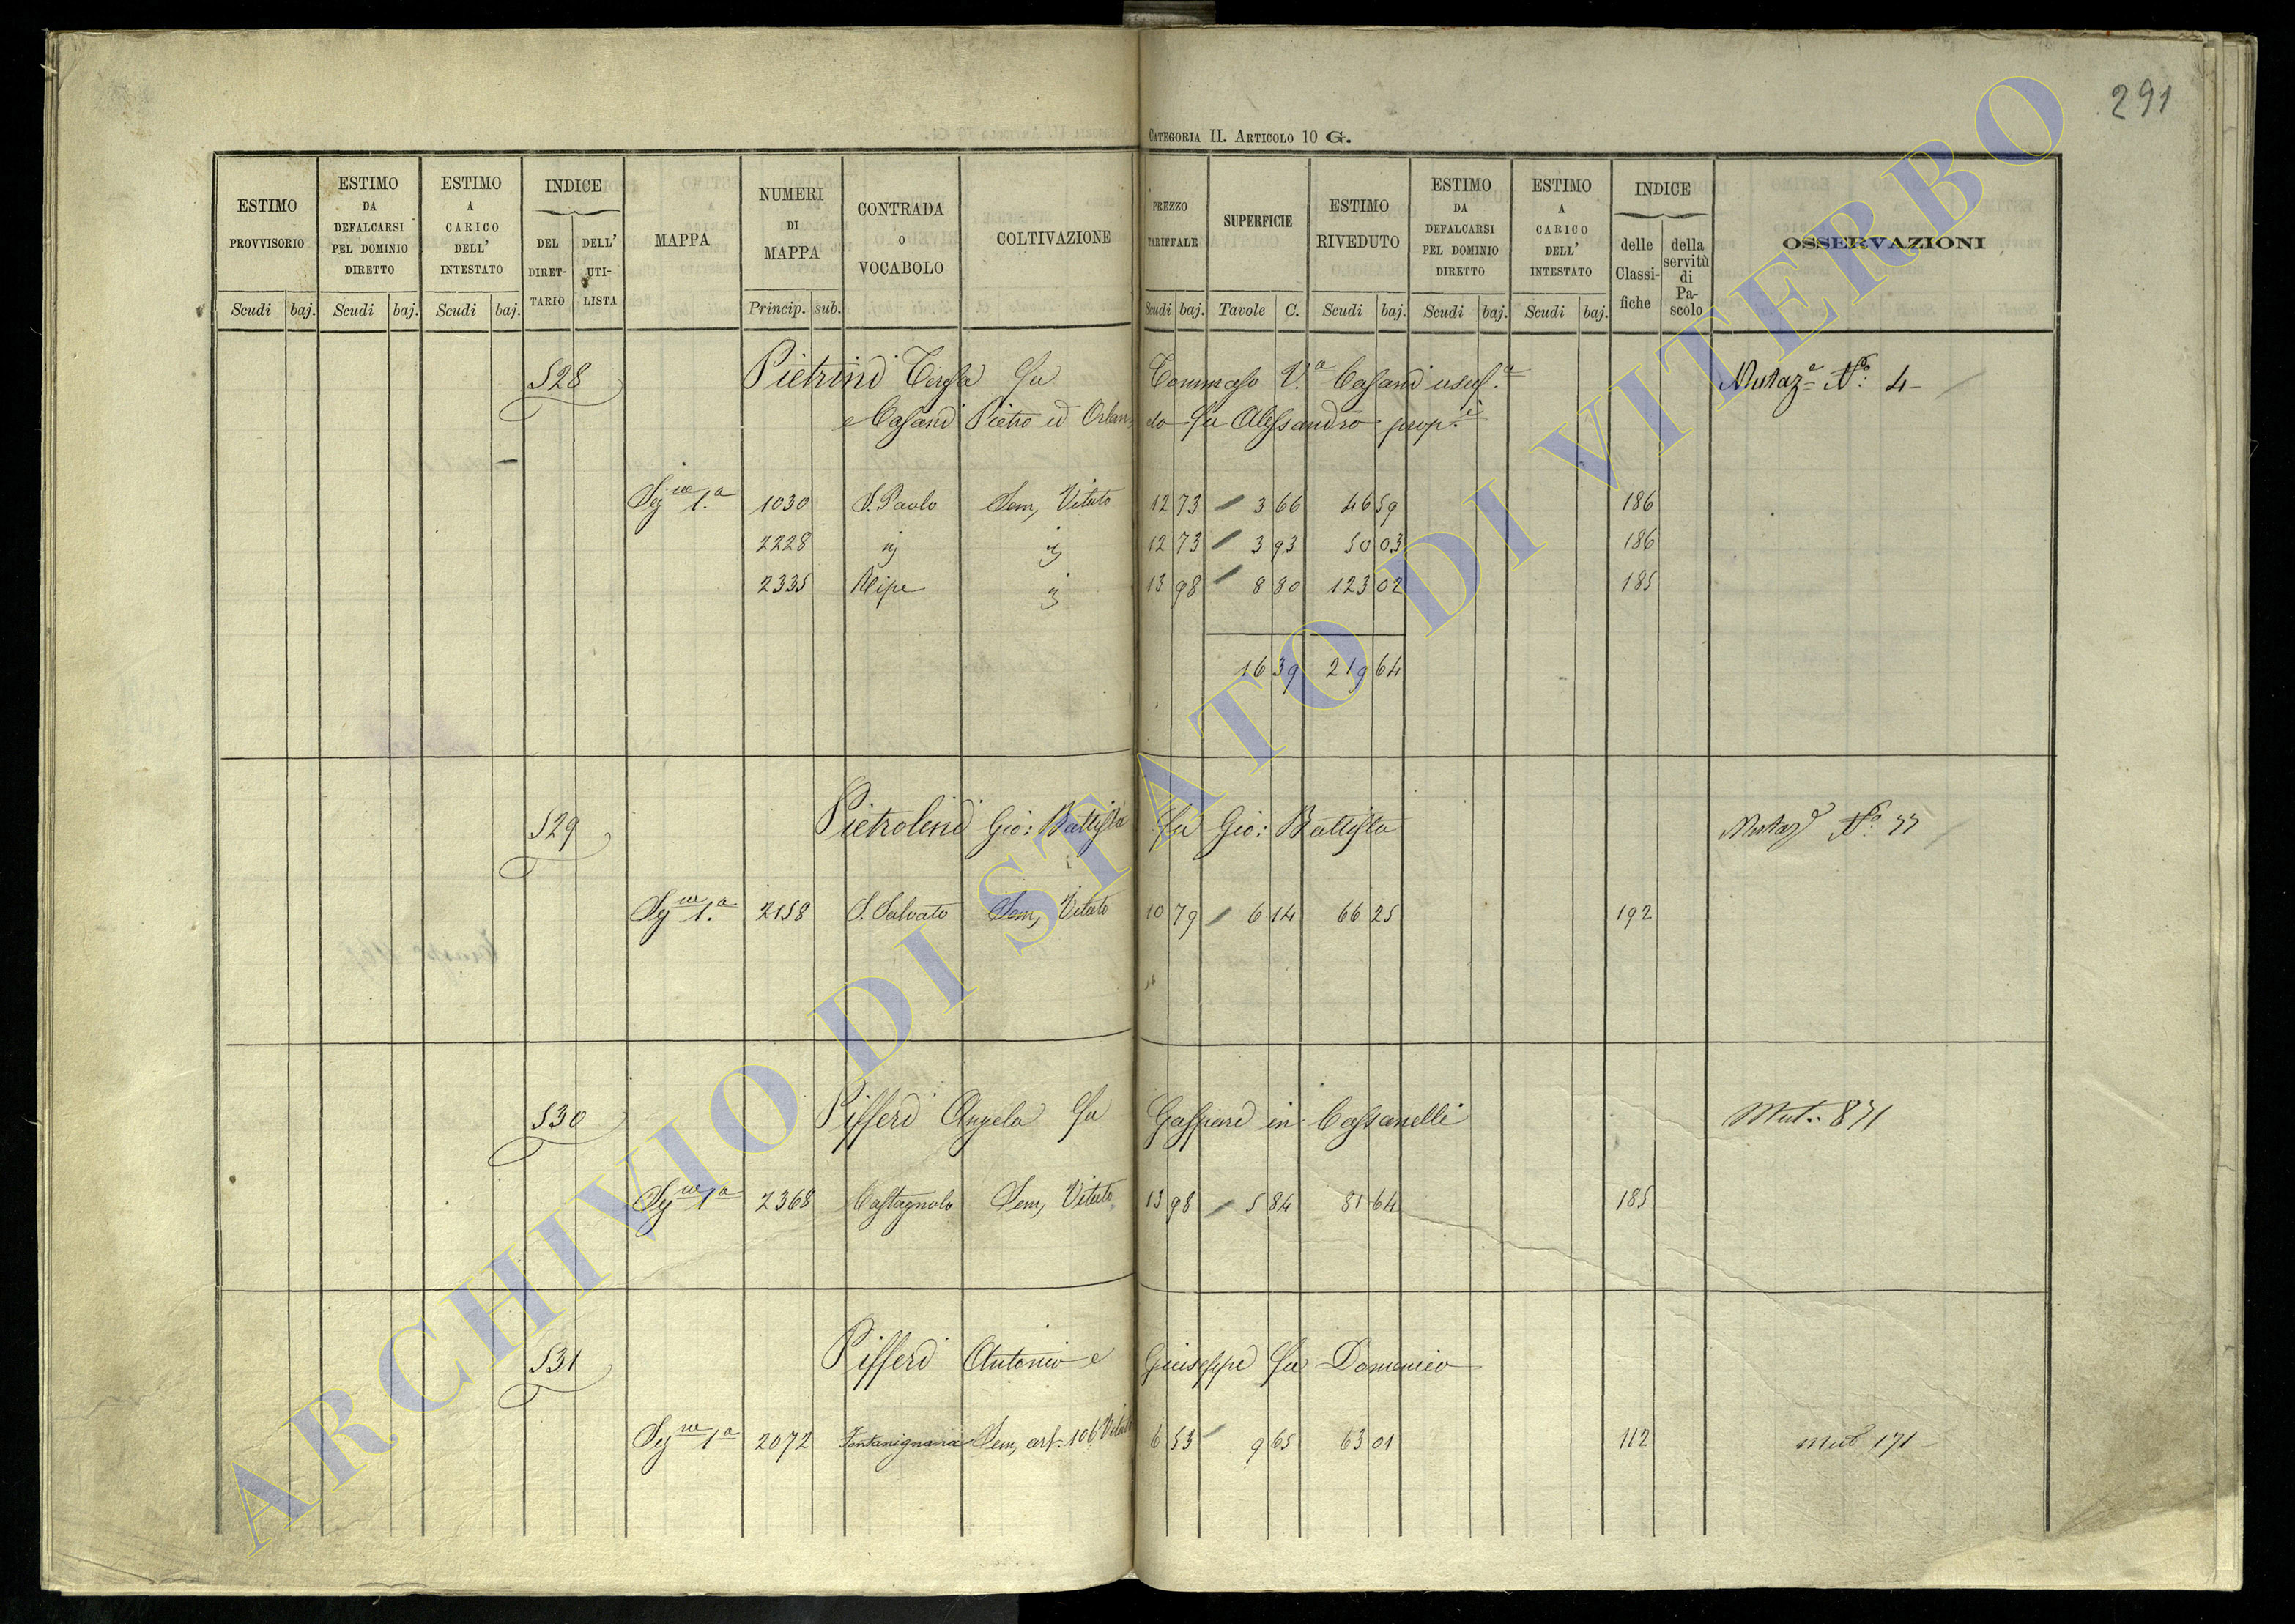 291
CATEGORIA II. ARTICOLO 10 G.
ESTIMO PROVVISORIO Scudi baj.
ESTIMO DA DEFALCARSI PEL DOMINIO DIRETTO Scudi baj.
ESTIMO A CARICO DELL' INTESTATO Scudi baj.
INDICE DEL DIRET-TARIO DELL' UTI-LISTA
MAPPA
NUMERI DI MAPPA Princip. sub.
CONTRADA O VOCABOLO
COLTIVAZIONE
PREZZO TARIFFALE Scudi baj.
SUPERFICIE Tavole C.
ESTIMO RIVEDUTO Scudi baj.
ESTIMO DA DEFALCARSI PEL DOMINIO DIRETTO Scudi baj.
ESTIMO A CARICO DELL' INTESTATO Scudi baj.
INDICE delle Classi-fiche della servitù di Pa-scolo
OSSERVAZIONI
528 Pietrini Teresa fu Tommaso V.a Casani usuf.a Mutaz.e N.o 4
e Casani Pietro ed Orlando fu Alessandro prop.i
Sez.ne 1.a 1030 S. Paolo Sem, Vitato 12 73 3 66 46 59 186
2228 ij ij 12 73 3 93 50 03 186
2335 Ripe ij 13 98 8 80 123 02 185
16 39 219 64
529 Pietrolini Gio: Battista fu Gio: Battista Mutaz.e N.o 77
Sez.ne 1.a 2158 S. Salvato Sem, Vitato 10 79 6 14 66 25 192
530 Pifferi Angela fu Gaspare in Cassanelli Mut: 871
Sez.ne 1.a 2368 Castagnolo Sem, Vitato 13 98 5 84 81 64 185
531 Pifferi Antonio e Giuseppe fu Domenico
Sez.ne 1.a 2072 Fontanignana Sem, art. 106 Vitato 6 53 9 65 63 01 112 Mut 171
ARCHIVIO DI STATO DI VITERBO